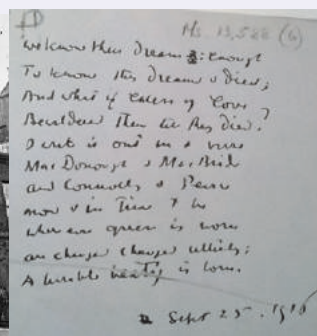 Ms. 13,588 (6)
We know their Dream : enough
To know they Dreamed & died,
And what if excess of Love
Bewildered Them till they died?
I write it out in a verse
MacDonough & MacBride
and Connolly & Pearse
now & in Time to be
wherever green is worn
are changed changed utterly:
A terrible beauty is born.
Sept 25. 1916